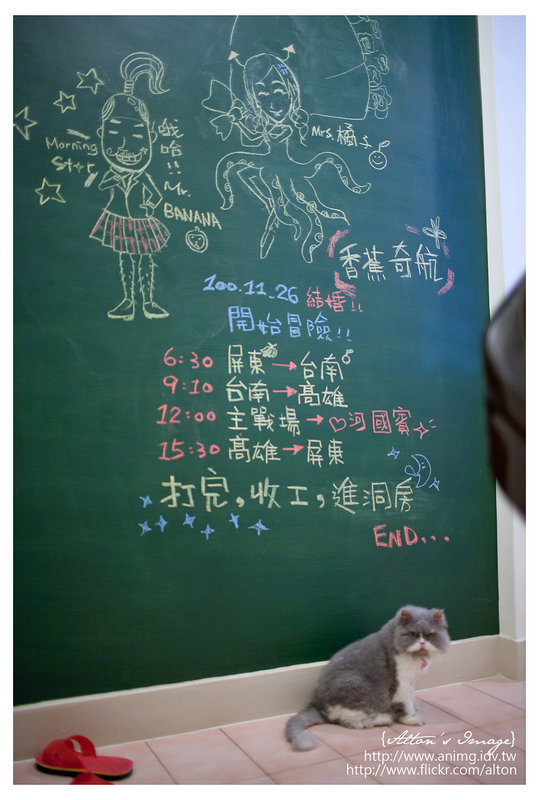 Morning
Star
哦
哈!!
Mr.
BANANA
Mrs. 橘子
香蕉奇航
100.11.26 結婚!!
開始冒險!!
6:30 屏東→台南
9:10 台南→高雄
12:00 主戰場→♡河國賓
15:30 高雄→屏東
打完,收工,進洞房
END...
{Alton's Image}
http://www.animg.idv.tw
http://www.flickr.com/alton